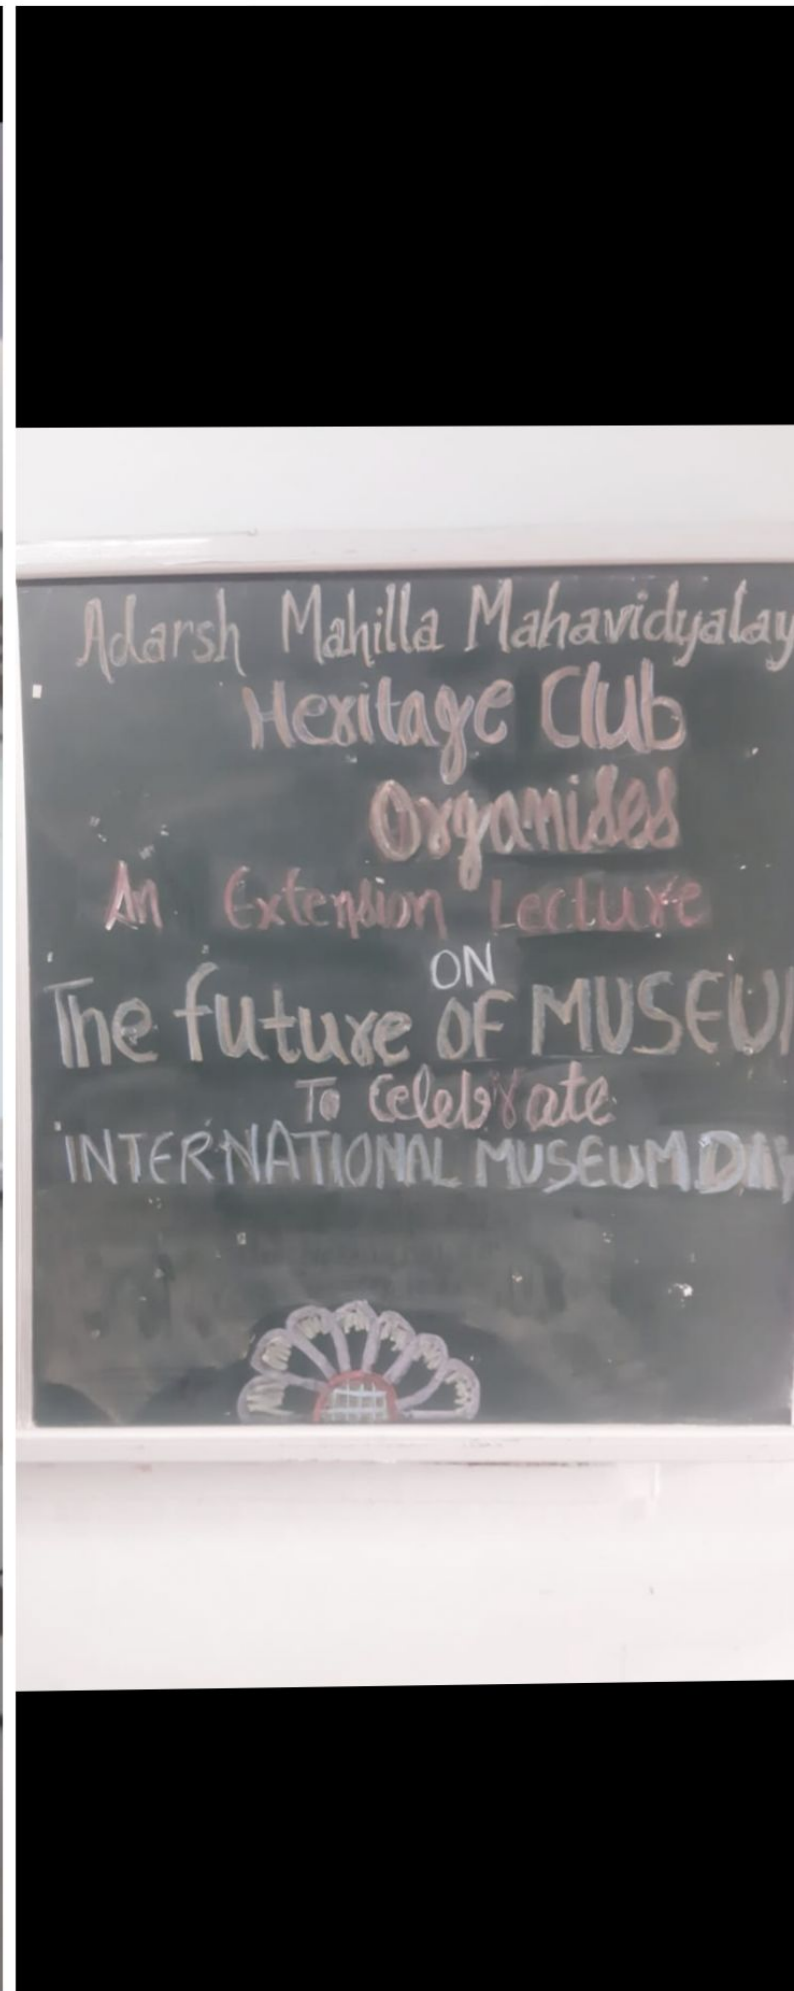 Adarsh Mahilla Mahavidyalay
Heritage Club
Organises
An Extension Lecture
ON
The future OF MUSEU
To Celebrate
INTERNATIONAL MUSEUM DAY